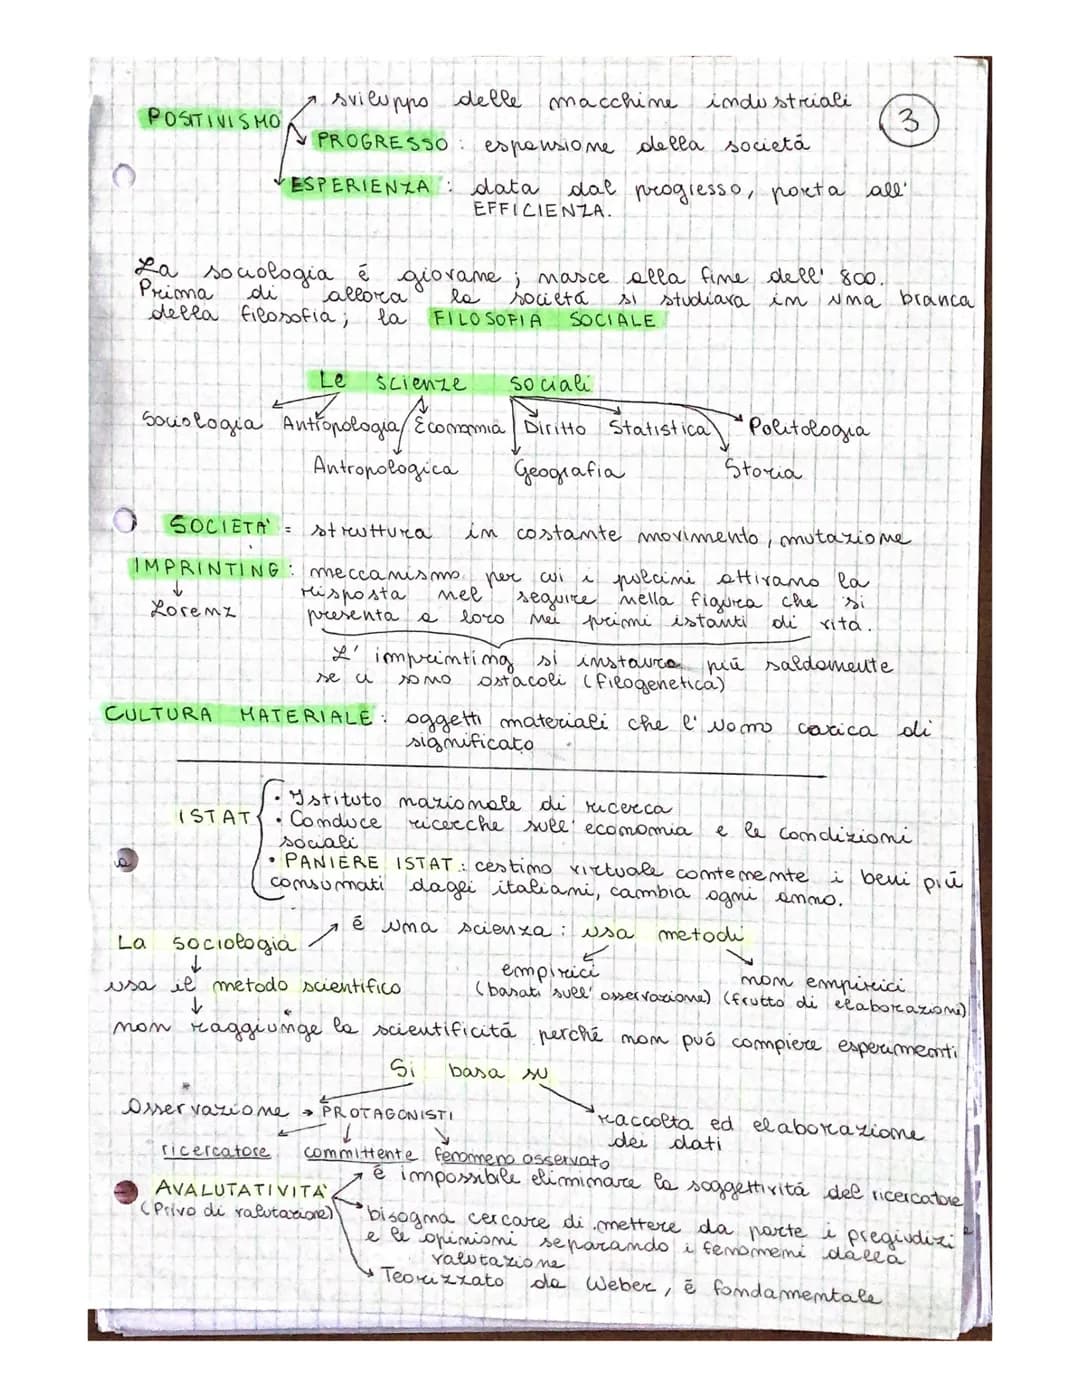 sviluppo delle macchine industriali
3
POSITIVISMO
PROGRESSO : espansione della società
ESPERIENZA : data dal progresso, porta all'
EFFICIENZA.
La sociologia é giovane ; nasce alla fine dell' 800.
Prima di allora la società si studiava in una branca
della filosofia, la FILOSOFIA SOCIALE
Le scienze sociali
Sociologia Antropologia Economia Diritto Statistica Politologia
Antropologica Geografia Storia
SOCIETA' = struttura in costante movimento, mutazione
IMPRINTING : meccanismo per cui i pulcini attivano la
risposta nel seguire nella figura che si
Lorenz presenta a loro nei primi istanti di vita.
L' imprinting si instaura più saldamente
se ci sono ostacoli (filogenetica)
CULTURA MATERIALE : oggetti materiali che l' uomo carica di
significato
• Istituto nazionale di ricerca
ISTAT • Conduce ricerche sull' economia e le condizioni
sociali
• PANIERE ISTAT : cestino virtuale contenente i beni più
consumati dagli italiani, cambia ogni anno.
é una scienza : usa metodi
La sociologia
empirici non empirici
usa il metodo scientifico (basati sull' osservazione) (frutto di elaborazioni)
non raggiunge la scientificità perché non può compiere esperimenti
Si basa su
Osservazione → PROTAGONISTI raccolta ed elaborazione
dei dati
ricercatore committente fenomeno osservato
é impossibile eliminare la soggettività del ricercatore
AVALUTATIVITA'
(Privo di valutazione) bisogna cercare di mettere da parte i pregiudizi
e le opinioni separando i fenomeni dalla
valutazione
Teorizzato da Weber, é fondamentale